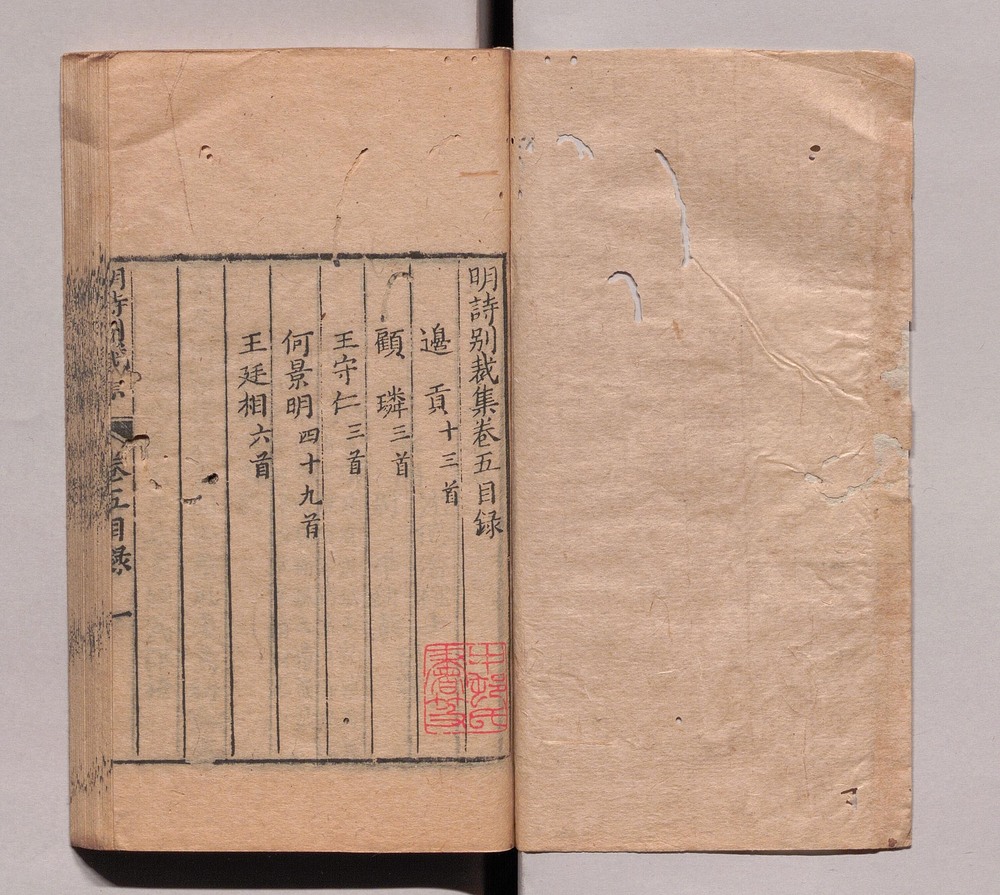 明詩别裁集卷五目録
邊貢十三首
顧璘三首
王守仁三首
何景明四十九首
王廷相六首
明詩别裁集 卷五目録 一